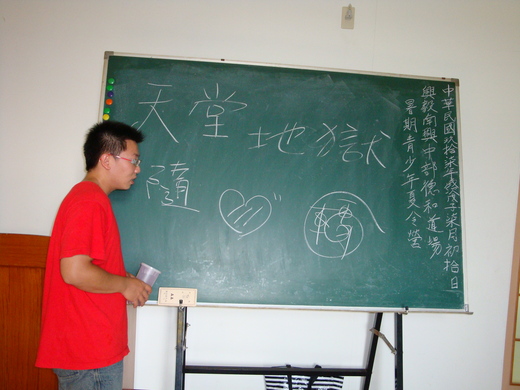 中華民國玖拾柒年歲戊子柒月初拾日
興毅南興中部德和道場
暑期青少年夏令營
天堂地獄
隨
轉